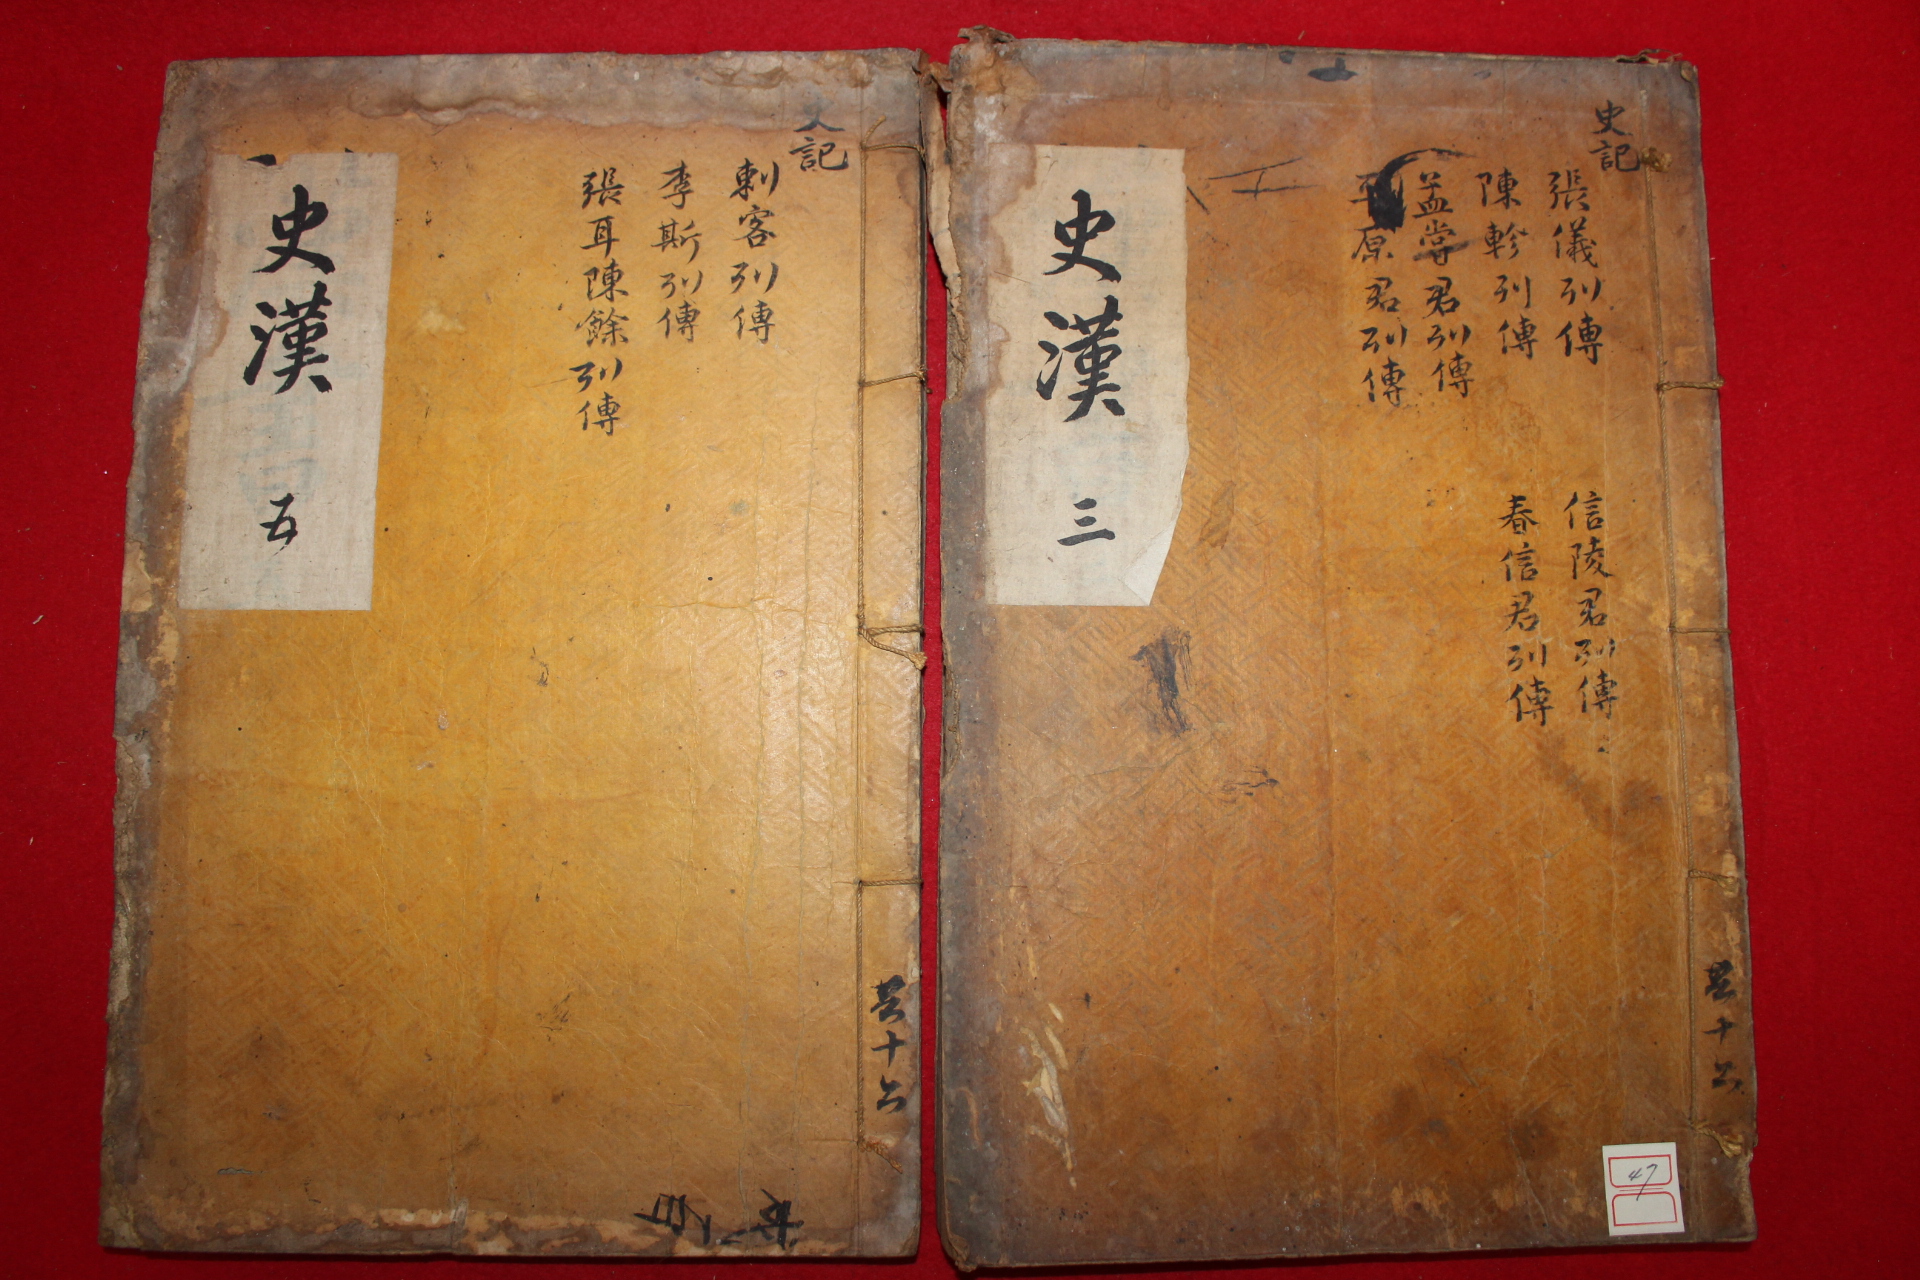 史記
張儀列傳
陳軫列傳
孟嘗君列傳
平原君列傳
信陵君列傳
春信君列傳
史漢
三
共十六
47
史記
刺客列傳
李斯列傳
張耳陳餘列傳
史漢
五
共十六